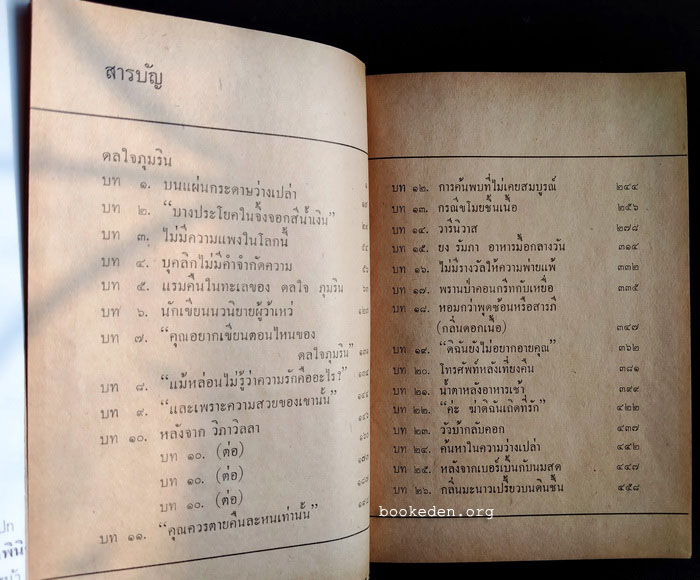 สารบัญ
ดลใจภุมริน
บท ๑. บนแผ่นกระดาษว่างเปล่า
บท ๒. “บางประโยคในจิ้งจอกสีน้ำเงิน”
บท ๓. ไม่มีความแพงในโลกนี้
บท ๔. บุคลิกไม่มีคำจำกัดความ
บท ๕. แรมคืนในทะเลของ ดลใจ ภุมริน
บท ๖. นักเขียนนวนิยายผู้ว้าเหว่
บท ๗. “คุณอยากเขียนตอนไหนของ
ดลใจภุมริน”
บท ๘. “แม้หล่อนไม่รู้ว่าความรักคืออะไร?”
บท ๙. “และเพราะความสวยของเขานั้น”
บท ๑๐. หลังจาก วิภาวิลลา
บท ๑๐. (ต่อ)
บท ๑๐. (ต่อ)
บท ๑๐. (ต่อ)
บท ๑๑. “คุณควรตายคืนละหนเท่านั้น”
บท ๑๒. การค้นพบที่ไม่เคยสมบูรณ์ ๒๔๔
บท ๑๓. กรณีขโมยชั้นเนื้อ ๒๕๖
บท ๑๔. วารีนิวาส ๒๗๘
บท ๑๕. ยง รัมภา อาหารมื้อกลางวัน ๓๑๔
บท ๑๖. ไม่มีรางวัลให้ความพ่ายแพ้ ๓๓๒
บท ๑๗. พรานป่าคอนกรีทกับเหยื่อ ๓๓๕
บท ๑๘. หอมกว่าพุดซ้อนหรือสารภี
(กลิ่นดอกเนื้อ) ๓๔๗
บท ๑๙. “ดิฉันยังไม่อยากอายคุณ” ๓๖๒
บท ๒๐. โทรศัพท์หลังเที่ยงคืน ๓๘๑
บท ๒๑. น้ำตาหลังอาหารเช้า ๓๙๙
บท ๒๒. “ค่ะ ฆ่าดิฉันเถิดที่รัก” ๔๒๒
บท ๒๓. วัวบ้ากลับคอก ๔๓๗
บท ๒๔. ค้นหาในความว่างเปล่า ๔๔๒
บท ๒๕. หลังจากเบอร์เบิ้นกับนมสด ๔๔๗
บท ๒๖. กลิ่นมะนาวเปรี้ยวบนดินชื้น ๔๕๘
bookeden.org